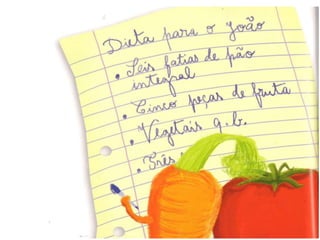 Dieta para o João
• Seis fatias de pão
integral
• Cinco peças de fruta
• Vegetais q.b.
• Três